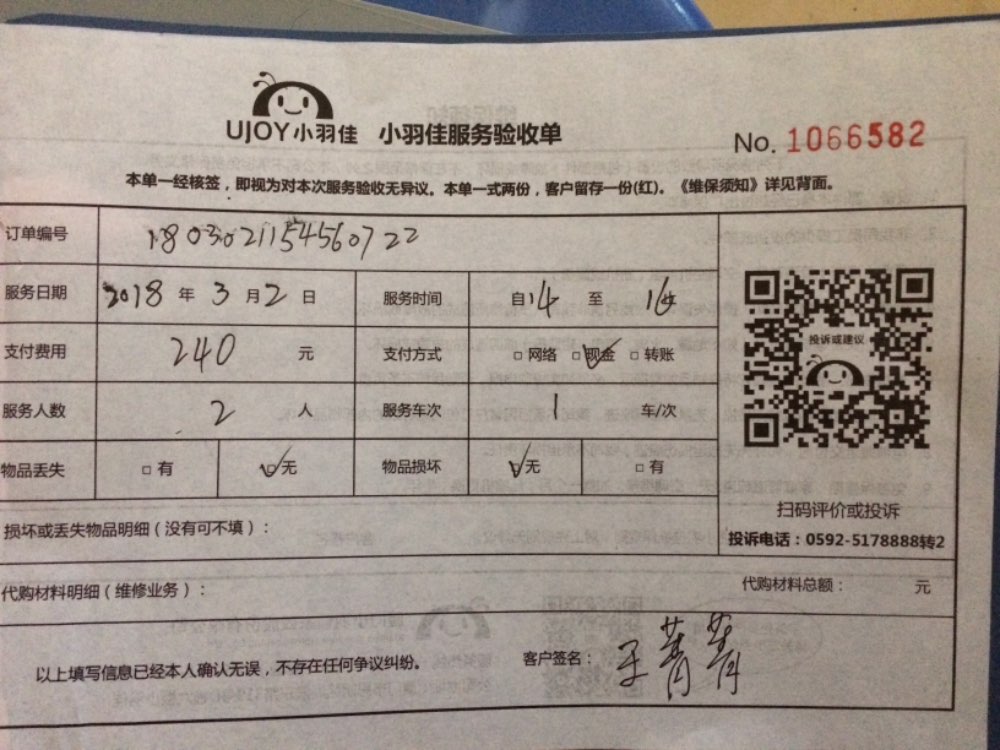 UJOY小羽佳 小羽佳服务验收单
No. 1066582
本单一经核签，即视为对本次服务验收无异议。本单一式两份，客户留存一份(红)。《维保须知》详见背面。
订单编号 18030211545607 22
服务日期 2018 年 3 月 2 日 服务时间 自14 至 16
支付费用 240 元 支付方式 □网络 □现金 □转账
投诉或建议
服务人数 2 人 服务车次 1 车/次
物品丢失 □有 ☑无 物品损坏 ☑无 □有
扫码评价或投诉
损坏或丢失物品明细（没有可不填）：
投诉电话：0592-5178888转2
代购材料明细（维修业务）： 代购材料总额： 元
以上填写信息已经本人确认无误，不存在任何争议纠纷。 客户签名： 王菁菁